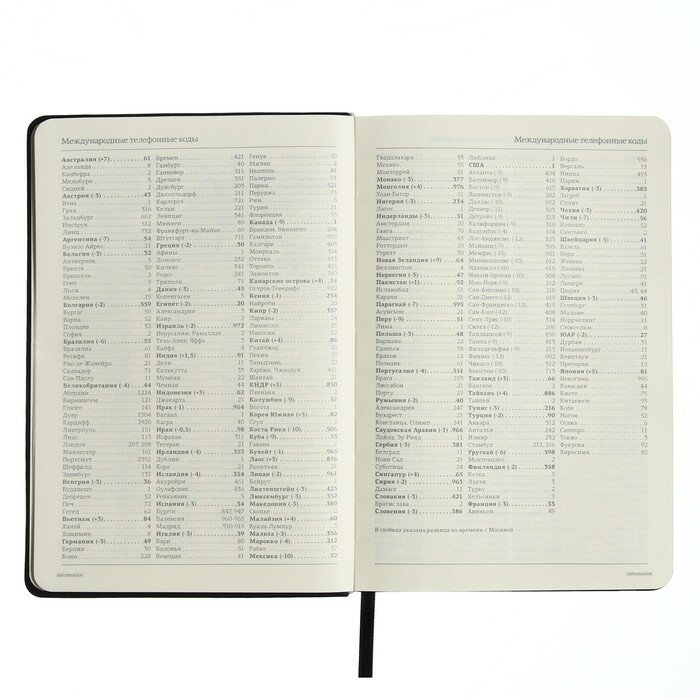 Международные телефонные коды
Австралия (+7) 61
Аделаида 8
Канберра 2
Мельбурн 3
Сидней 2
Австрия (-3) 43
Вена 1
Грац 316
Зальцбург 662
Инсбрук 512
Линц 732
Аргентина (-7) 54
Буэнос-Айрес 11
Бельгия (-3) 32
Антверпен 3
Брюгге 50
Брюссель 2
Гент 9
Льеж 4
Мехелен 15
Болгария (-2) 359
Бургас 56
Варна 52
Пловдив 32
София 2
Бразилия (-6) 55
Бразилиа 61
Ресифи 81
Рио-де-Жанейро 21
Салвадор 71
Сан-Паулу 11
Великобритания (-4) 44
Абердин 1224
Бирмингем 121
Глазго 141
Дувр 1304
Кардифф 2920
Ливерпуль 151
Лидс 113
Лондон 207, 208
Манчестер 161
Портсмут 2392
Шеффилд 114
Эдинбург 131
Венгрия (-3) 36
Будапешт 1
Дебрецен 52
Печ 72
Сегед 62
Вьетнам (+3) 84
Ханой 4
Хошимин 8
Германия (-3) 49
Берлин 30
Бонн 228
Бремен 421
Гамбург 40
Ганновер 511
Дрезден 351
Дуйсбург 203
Дюссельдорф 211
Карлсруэ 721
Кельн 221
Лейпциг 341
Мюнхен 89
Франкфурт-на-Майне 69
Штутгарт 711
Греция (-2) 30
Афины 1
Домокос 232
Килкис 341
Родос 241
Триполи 71
Дания (-3) 45
Копенгаген 3
Египет (-2) 20
Александрия 3
Каир 2
Израиль (-2) 972
Иерусалим, Рамаллах 2
Тель-Авив, Яффа 3
Хайфа 4
Индия (+1,5) 91
Дели 11
Калькутта 33
Мумбаи 22
Ченнаи 44
Индонезия (+3) 62
Джакарта 21
Ирак (-1) 964
Багдад 1
Басра 40
Иран (-0,5) 98
Исфаган 311
Тегеран 21
Ирландия (-4) 353
Дублин 1
Корк 21
Исландия (-4) 354
Акурейри 6
Оулафсвик 456
Рейкьявик 5
Испания (-3) 34
Бургос 847, 947
Валенсия 960-963
Мадрид 910-919
Италия (-3) 39
Бари 80
Болонья 51
Венеция 41
Генуя 10
Милан 2
Неаполь 81
Палермо 91
Парма 521
Перуджа 75
Рим 6
Турин 11
Флоренция 55
Канада (-9) 1
Брандон, Виннипег 204
Гамильтон 905
Калгари 403
Монреаль 514
Оттава 613
Торонто 416
Эдмонтон 780
Канарские острова (+4) 34
Остров Тенерифе 922
Кения (-1) 254
Найроби 20
Кипр (-2) 357
Ларнака 24
Лимассол 25
Никосия 22
Китай (+4) 86
Гуанчжоу 20
Пекин 10
Тяньцзинь 22
Харбин, Чжаоюан 451
Шанхай 21
КНДР (+5) 850
Пхеньян 2
Колумбия (-9) 57
Богота 1
Корея Южная (+5) 82
Сеул 2
Коста-Рика (-10) 506
Куба (-9) 53
Гавана 7
Кувейт (-1) 965
Лаос (+3) 856
Вьентьян 21
Ливан (-2) 961
Бейрут 1
Лихтенштейн (-3) 423
Люксембург (-3) 352
Македония (-3) 389
Скопье 2
Малайзия (+4) 60
Куала-Лумпур 3
Мальта (-3) 356
Марокко (-4) 212
Рабат 37
Мексика (-10) 52
information
Международные телефонные коды
Гвадалахара 33
Мехико 55
Монтеррей 81
Монако (-3) 377
Монголия (+4) 976
Улан-Батор 11
Нигерия (-3) 234
Лагос 1
Нидерланды (-3) 31
Амстердам 20
Гаага 70
Маастрихт 43
Роттердам 10
Утрехт 30
Новая Зеландия (+9) 64
Веллингтон 4
Норвегия (-3) 47
Пакистан (+1) 92
Исламабад 51
Карачи 21
Парагвай (-7) 595
Асунсион 21
Перу (-9) 51
Лима 1
Польша (-3) 48
Варшава 22
Гданьск 58
Краков 12
Познань 61
Португалия (-4) 351
Брага 253
Лиссабон 21
Порту 22
Румыния (-2) 40
Александрия 247
Бухарест 1
Констанца, Олимп 241
Саудовская Аравия (-1) 966
Лайла, Эр-Рияд 11
Сербия (-3) 381
Белград 11
Нови-Сад 21
Суботица 24
Сирия (-2) 963
Дамаск 11
Словакия (-3) 421
Братислава 2
Словения (-3) 386
Любляна 1
США 1
Атланта (-9) 404
Балтимор (-9) 410
Бостон (-9) 617
Вашингтон (-9) 202
Даллас (-10) 972
Денвер (-11) 303
Детройт (-9) 313
Колумбия (-9) 410
Колумбус (-10) 706
Лос-Анджелес (-12) 323
Майами (-9) 305
Мемфис (-10) 901
Миннеаполис (-10) 612
Нашвилл (-10) 615
Новый Орлеан (-10) 504
Нью-Йорк (-9) 212
Сан-Антонио (-10) 210
Сан-Диего (-12) 619
Сан-Франциско (-12) 415
Сан-Хосе (-12) 408
Сент-Луис (-10) 314
Сиэтл (-12) 206
Таллахасси (-9) 850
Тампа (-9) 813
Финикс (-12) 602
Чикаго (-10) 312
Хьюстон (-10) 713
Таиланд (+3) 66
Бангкок 2
Тайвань (+4) 886
Тайпей 2
Тунис (-3) 216
Турция (-2) 90
Анкара 312
Анталья 242
Измир 232
Стамбул 212, 216
Уругвай (-6) 598
Монтевидео 2
Финляндия (-2) 358
Котка 5
Лахти 3
Турку 2
Хельсинки 9
Франция (-3) 33
Авиньон 49
Бордо 556
Версаль 13
Ницца 493
Париж 1
Хорватия (-3) 385
Загреб 1
Сплит 21
Чехия (-3) 420
Чили (-7) 56
Копьяпо 52
Сантьяго 2
Швейцария (-3) 41
Базель 61
Берн 31
Женева 22
Лозанна 21
Лугано 91
Цюрих 43, 44
Швеция (-3) 46
Гетеборг 31
Мальме 40
Норрчепинг 11
Стокгольм 8
ЮАР (-2) 27
Дурбан 31
Йоханнесбург 11
Кейптаун 21
Претория 12
Япония (+5) 81
Иокогама 45
Кавасаки 44
Киото 75
Китакюсю 93
Кобе 78
Нагоя 52
Осака 6
Саппоро 11
Токио 3
Фукуока 92
Хиросима 82
В скобках указана разница во времени с Москвой
information